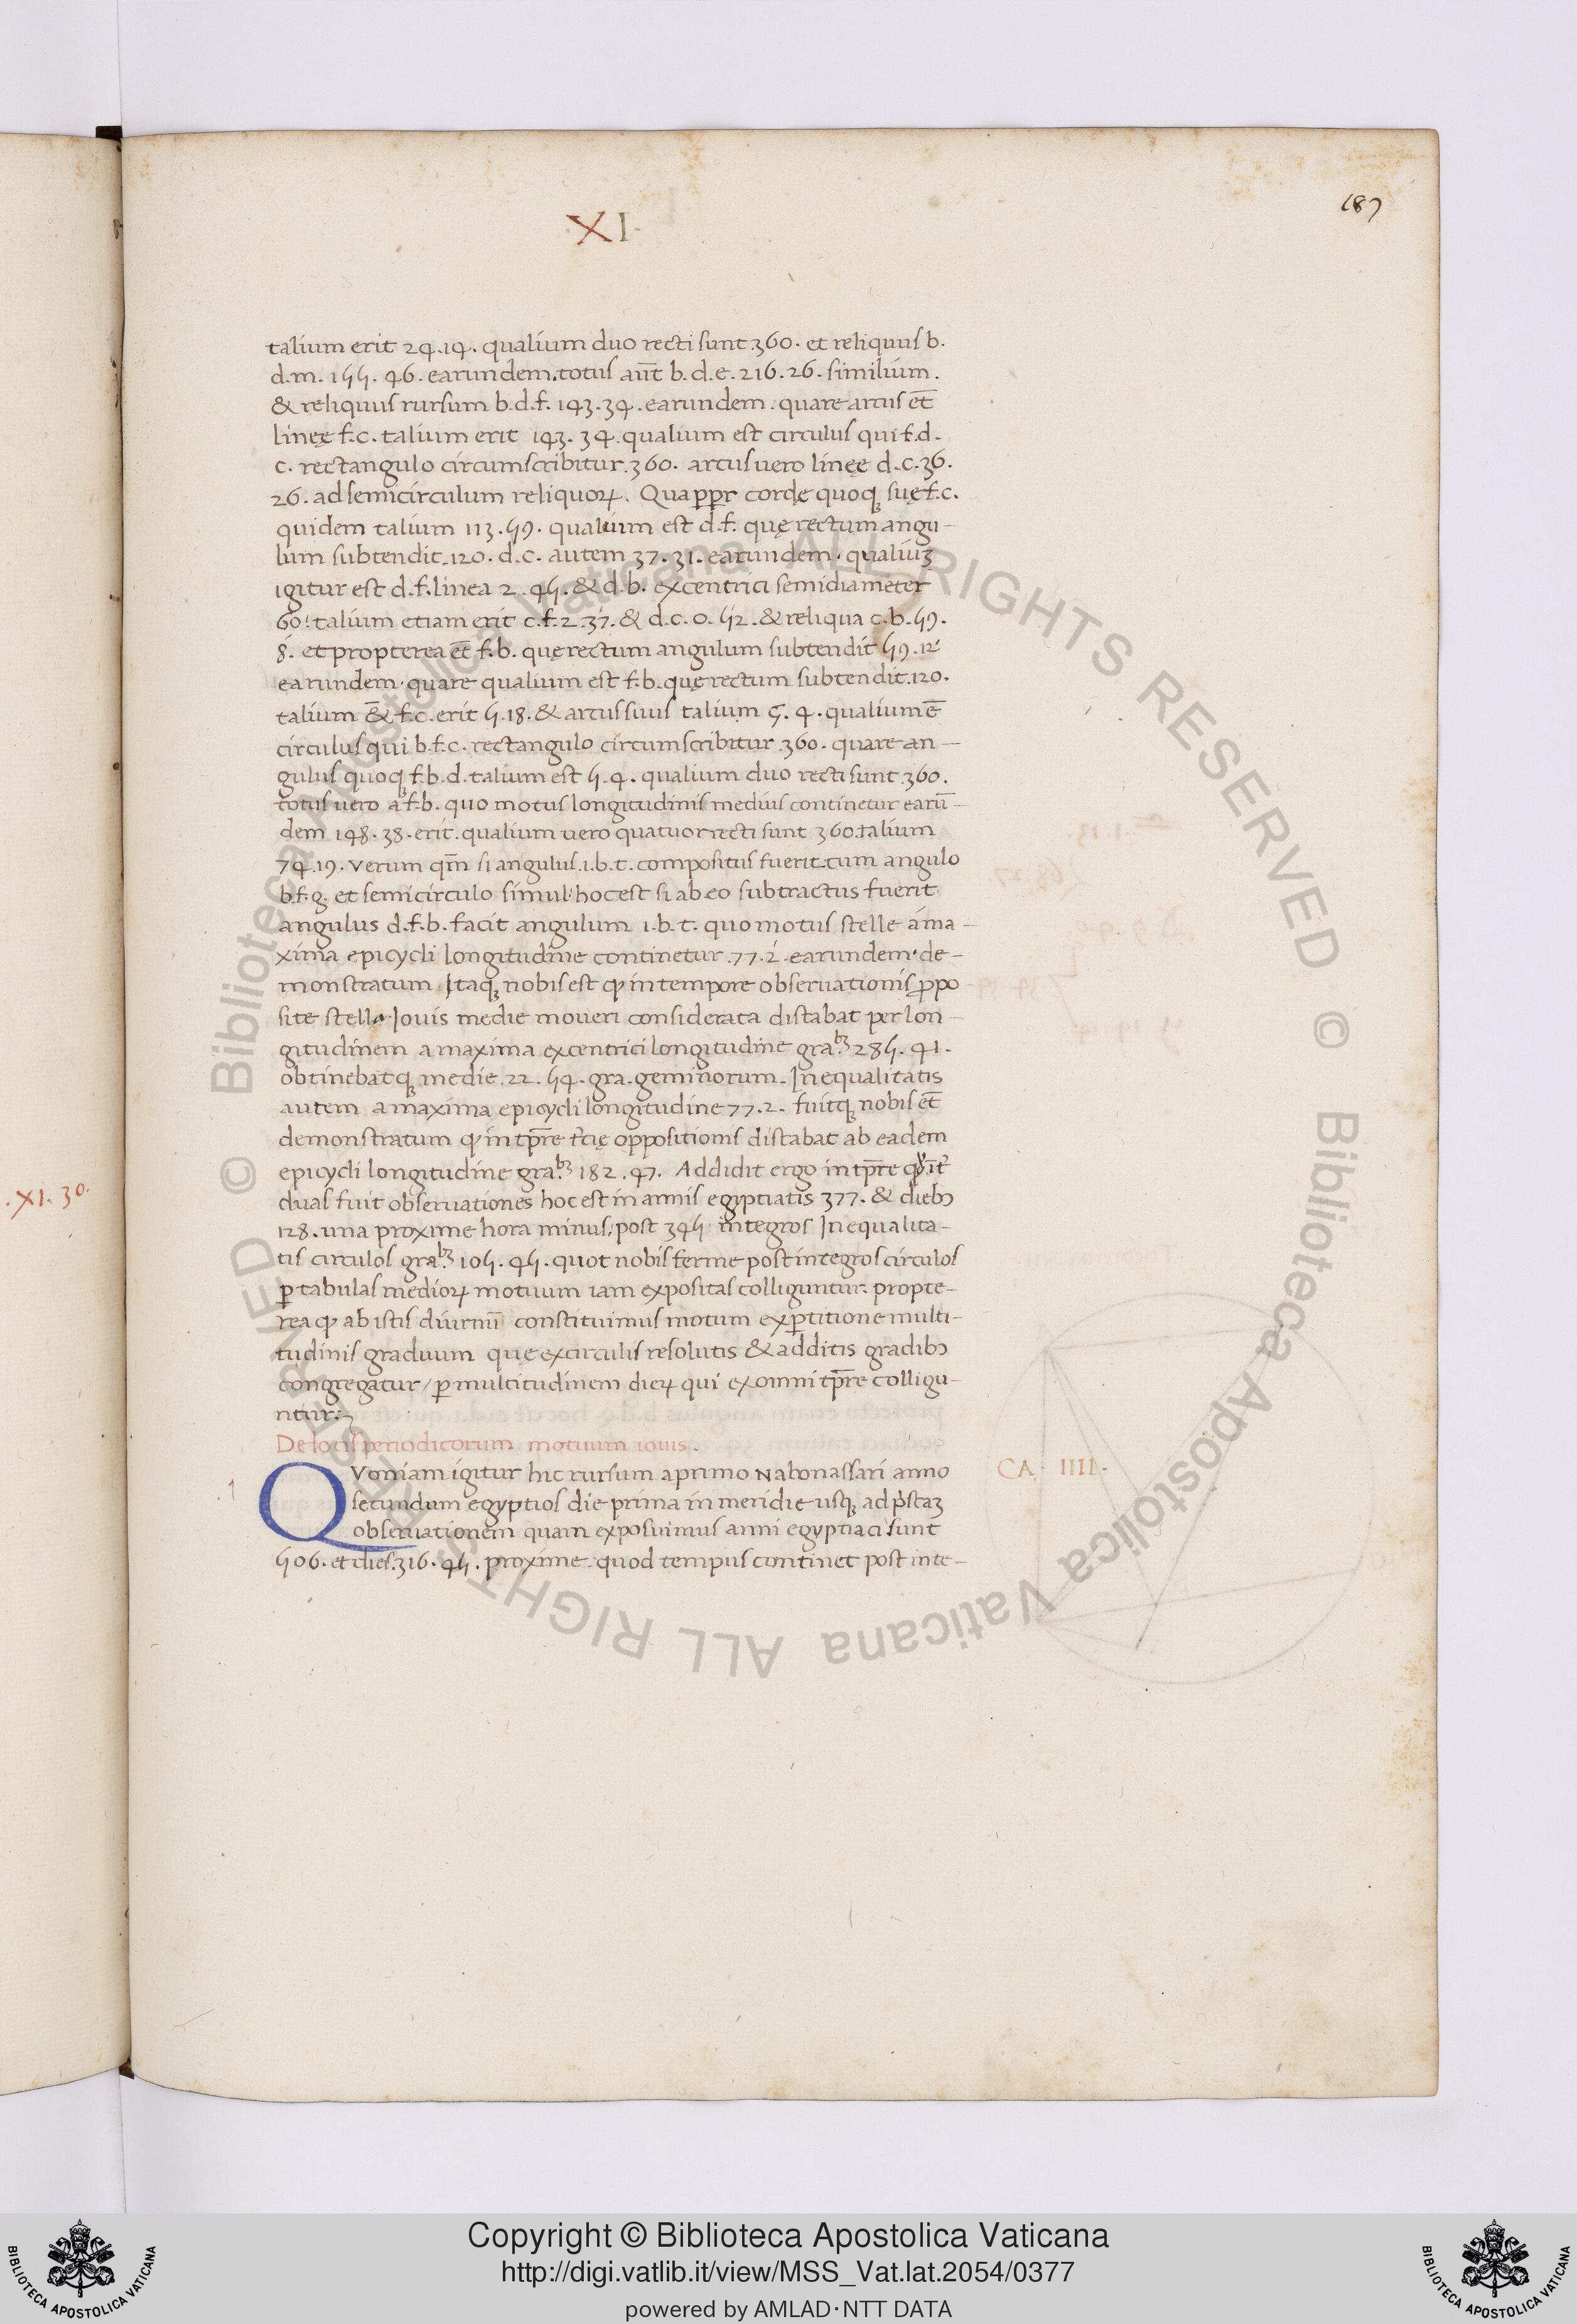 187
XI.
talium erit 24.14. qualium duo recti sunt 360. et reliquus b.
d.m. 155. 46. earundem. totus aūt b.d.e. 216. 26. similium.
& reliquus rursum b.d.f. 143.34. earundem. quare arcus et̄
lineę f.c. talium erit 143. 34. qualium est circulus qui f.d.
c. rectangulo circumscribitur 360. arcus uero lineę d.c. 36.
26. ad semicirculum reliquoꝝ. Quapp̄r cordę quoqꝫ suę f.c.
quidem talium 113. 59. qualium est d.f. quę rectum angu-
lum subtendit. 120. d.c. autem 37. 31. earundem. qualiuꝫ
igitur est d.f. linea 2. 45. & d.b. excentrici semidiameter
60. talium etiam erit c.f. 2. 37. & d.c. 0. 52. & reliqua c.b. 59.
8. et propterea et̄ f.b. quę rectum angulum subtendit 59. 12
earundem. quare qualium est f.b. quę rectum subtendit. 120.
talium & f.c. erit 5. 18. & arcus suus talium 5. 4. qualium ē
circulus qui b.f.c. rectangulo circumscribitur 360. quare an-
gulus quoqꝫ f.b.d. talium est 5. 4. qualium duo recti sunt 360.
totus uero a f.b. quo motus longitudinis medius continetur earū-
dem 148. 38. erit. qualium uero quatuor recti sunt 360. talium
74. 19. Verum qm̄ si angulus .i.b.t. compositus fuerit cum angulo
b.f.g. et semicirculo simul. hoc est si ab eo subtractus fuerit
angulus d.f.b. facit angulum i.b.t. quo motus stelle a ma-
xima epicycli longitudine continetur 77. 2. earundem. de-
monstratum Itaqꝫ nobis est ꝙ in tempore obseruationis ꝓpo
site stella Iouis medie moueri considerata distabat per lon-
gitudinem a maxima excentrici longitudine gra.bꝫ 285. 41.
obtinebatqꝫ medie 22. 54. gra. geminorum. Inequalitatis
autem a maxima epicycli longitudine 77. 2. fuitqꝫ nobis et̄
demonstratum ꝙ in tp̄re t̄cię oppositionis distabat ab eadem
epicycli longitudine gra.bꝫ 182. 47. Addidit ergo in tp̄re qḋ int̄
duas fuit obseruationes hoc est in annis egyptiatis 377. & dieb9
128. una proxime hora minus, post 345 integros Inequalita-
tis circulos gra.bꝫ 105. 45. quot nobis ferme post integros circulos
ꝑ tabulas medioꝝ motuum iam expositas colliguntur. propte-
rea ꝙ ab istis diurnū constituimus motum ex ꝑtitione multi-
tudinis graduum quę ex circulis resolutis & additis gradib9
congregatur, ꝑ multitudinem dieꝝ qui ex omni tp̄re colligu-
ntur.
De locis periodicorum motuum iouis.
CA. IIII.
QVoniam igitur hic rursum a primo Nabonassari anno
secundum egyptios die prima in meridie usqꝫ ad p̄staꝫ
obseruationem quam exposuimus anni egyptiaci sunt
506. et dies. 316. 45. proxime. quod tempus continet post inte-
.XI. 30.
Copyright © Biblioteca Apostolica Vaticana
http://digi.vatlib.it/view/MSS_Vat.lat.2054/0377
powered by AMLAD·NTT DATA
BIBLIOTECA APOSTOLICA VATICANA
BIBLIOTECA APOSTOLICA VATICANA
© Biblioteca Apostolica Vaticana ALL RIGHTS RESERVED
© Biblioteca Apostolica Vaticana ALL RIGHTS RESERVED